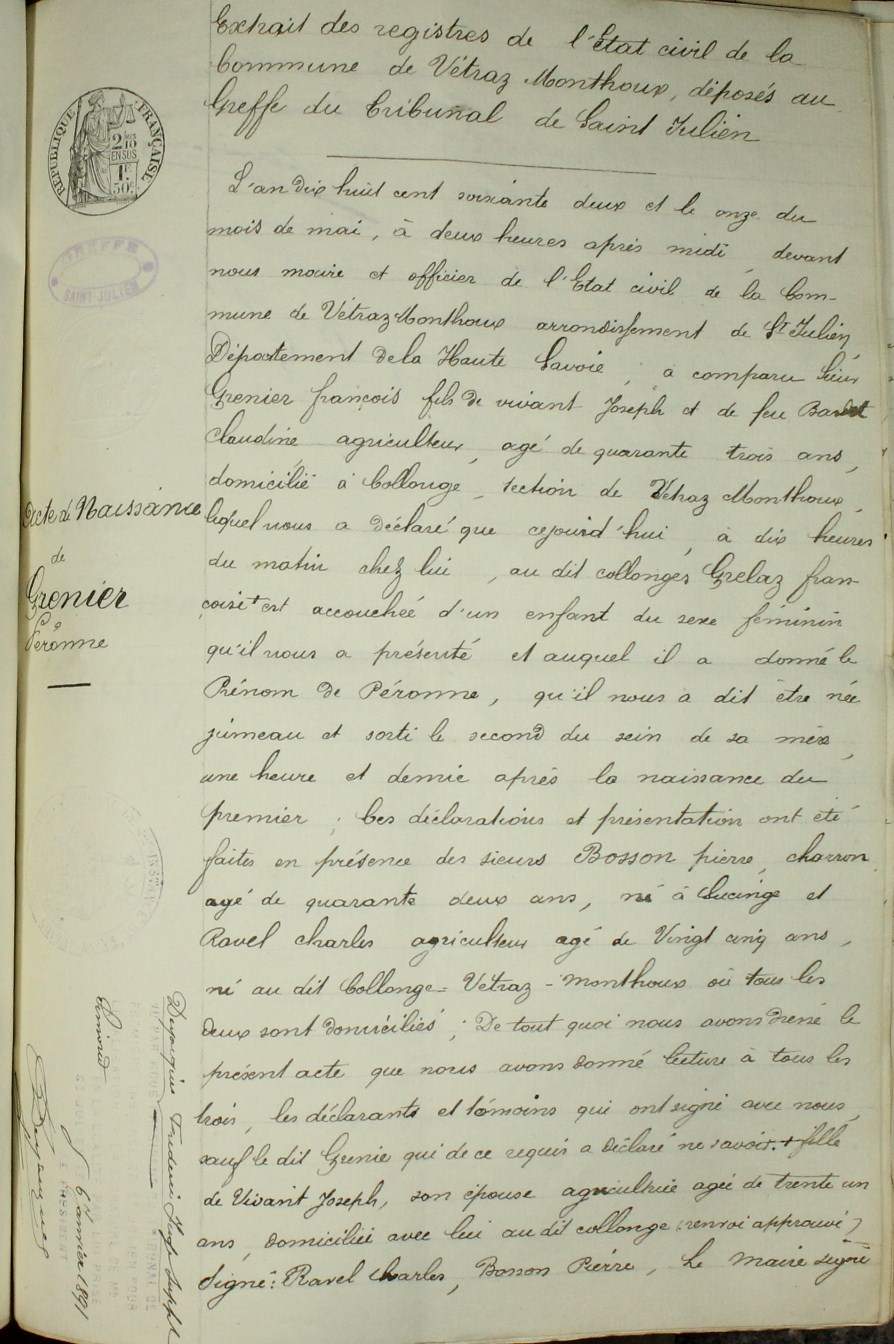 Extrait des registres de l'Etat civil de la
Commune de Vétraz Monthoux, déposés au
Greffe du Tribunal de Saint Julien
REPUBLIQUE FRANÇAISE
2/10 EN SUS
1F 50c
GREFFE
SAINT JULIEN
L'an dix huit cent soixante deux et le onze du
mois de mai, à deux heures après midi, devant
nous maire et officier de l'Etat civil de la Com-
mune de Vétraz-Monthoux arrondissement de St Julien,
Département de la Haute Savoie, a comparu Sieur
Grenier françois fils de vivant Joseph et de feu
Claudine, agriculteur, agé de quarante trois ans,
domicilié à Collonge, section de Vétraz Monthoux,
lequel nous a déclaré que cejourd'hui, à dix heures
du matin chez lui, au dit collonges Grelaz fran-
çoise + est accouchée d'un enfant du sexe féminin
qu'il nous a présenté et auquel il a donné le
Prénom de Péronne, qu'il nous a dit être née
jumeau et sorti le second du sein de sa mère,
une heure et demie après la naissance du
premier; Ces déclarations et présentation ont été
faites en présence des sieurs Bosson pierre, charron
agé de quarante deux ans, né à Lucinge et
Ravel charles agriculteur agé de Vingt cinq ans,
né au dit Collonge-Vétraz-Monthoux où tous les
deux sont domiciliés; De tout quoi nous avons dréné le
présent acte que nous avons donné lecture à tous les
trois, les déclarants et témoins qui ont signé avec nous,
sauf le dit Grenie qui de ce requis a déclaré ne savoir. + fille
de Vivant Joseph, son épouse agricultrice agée de trente un
ans, domiciliée avec lui au dit collonge (renvoi approuvé)
Signé: Ravel Charles, Bosson Pierre, Le Maire signé
Acte de Naissance
de
Grenier
Péronne
Frederic Juge Suppl
6 janvier 1891